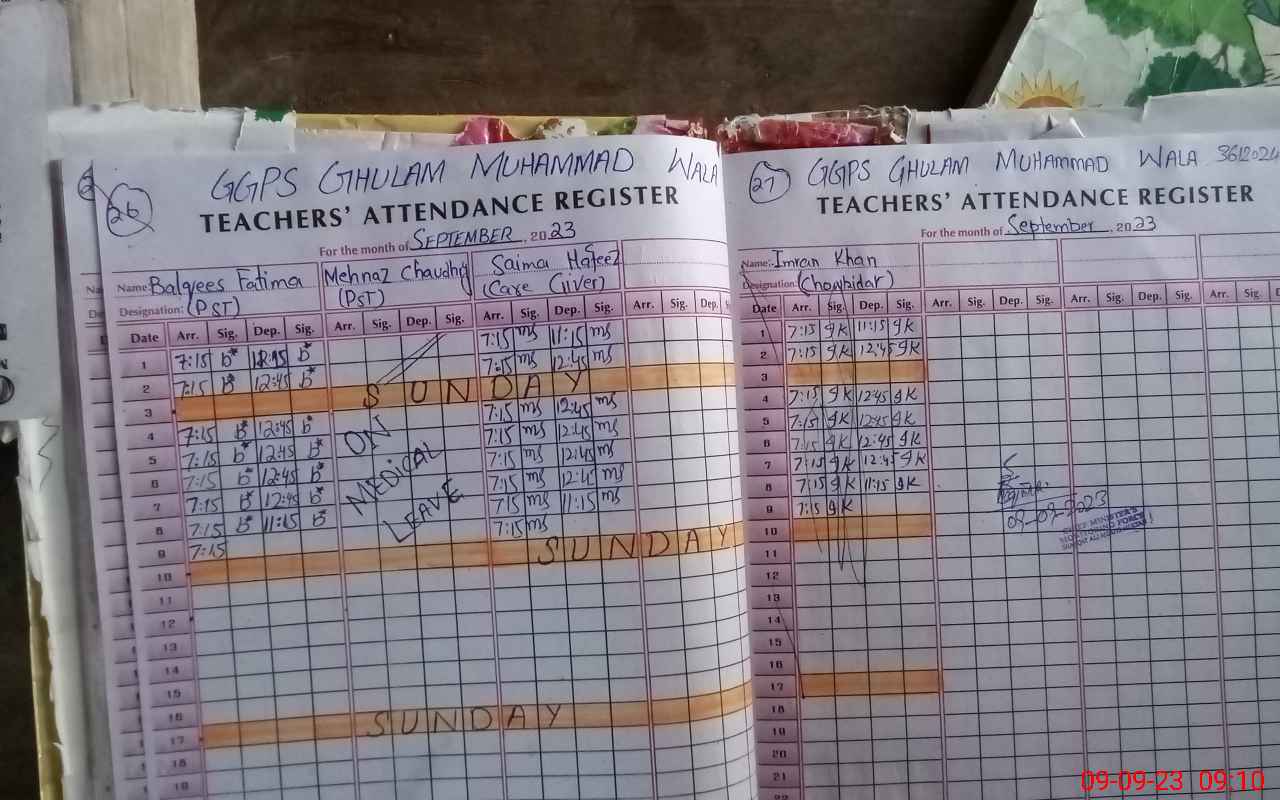 26
GGPS GHULAM MUHAMMAD WALA
TEACHERS' ATTENDANCE REGISTER
For the month of SEPTEMBER, 2023
Name: Balqees Fatima Mehnaz Chaudhry Saima Hafeez
Designation: (PST) (PST) (Care Giver)
Date Arr. Sig. Dep. Sig. Arr. Sig. Dep. Sig. Arr. Sig. Dep.
7:15 ms 11:15 ms
1 7:15 B* B* 7:15 ms 12:45 ms
2 7:15 B* 12:45 B*
3 SUNDAY
7:15 ms 12:45 ms
4 7:15 B* 12:45 B* 7:15 ms 12:45 ms
5 7:15 B* 12:45 B* 7:15 ms 12:45 ms
6 7:15 B* 12:45 B* 7:15 ms 12:45 ms
7 7:15 B* 12:45 B* 7:15 ms 11:15 ms
8 7:15 B* 11:15 B* 7:15 ms
ON
MEDICAL
LEAVE
9 7:15
10 SUNDAY
11
12
13
14
15
16
17 SUNDAY
18
19
27
GGPS GHULAM MUHAMMAD WALA
TEACHERS' ATTENDANCE REGISTER
For the month of September, 2023
Name: Imran Khan
Designation: (Chowbidar)
Date Arr. Sig. Dep. Sig. Arr. Sig. Dep. Sig. Arr. Sig. Dep. Sig. Arr. Sig.
1 7:15 IK 11:15 IK
2 7:15 IK 12:45 IK
3
4 7:15 IK 12:45 IK
5 7:15 IK 12:45 IK
6 7:15 IK 12:45 IK
7 7:15 IK 12:45 IK
8 7:15 IK 11:15 IK
9 7:15 IK
10
09-09-2023
CHIEF MINISTER'S
MONITORING FORCE
11
12
13
14
15
16
17
18
19
20
21
22
09-09-23 09:10